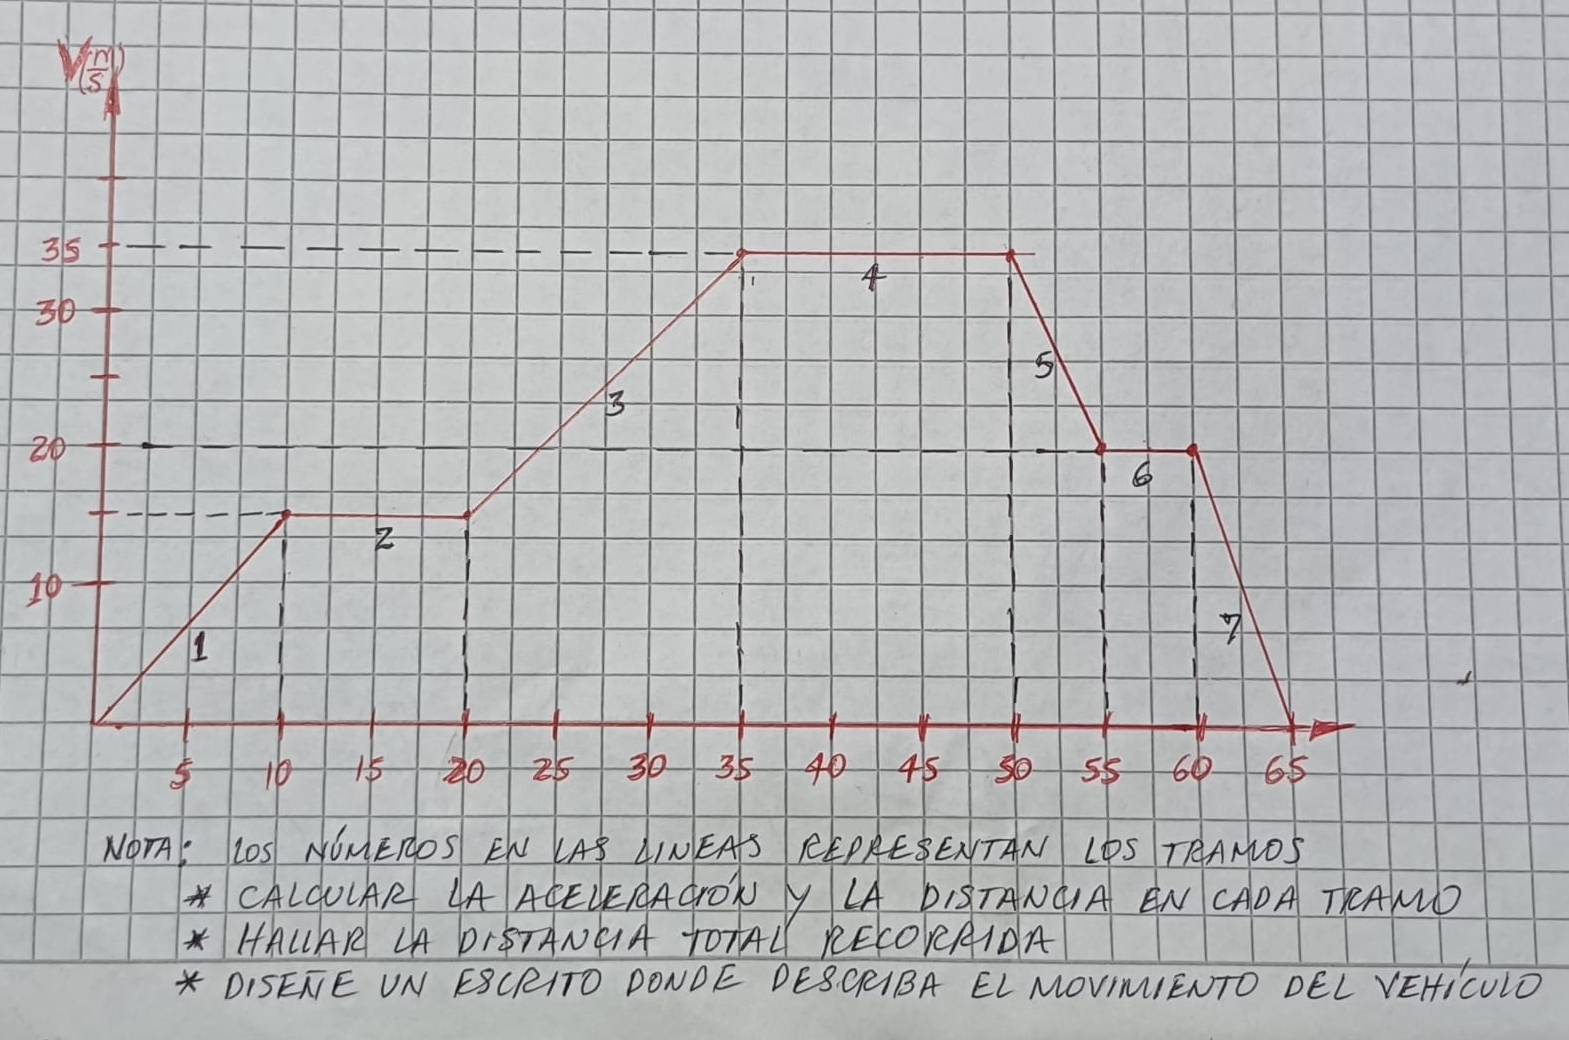 V(m/s)
35
4
30
5
3
20
6
2
10
7
1
5 10 15 20 25 30 35 40 45 50 55 60 65
NOTA: LOS NÚMEROS EN LAS LINEAS REPRESENTAN LOS TRAMOS
* CALCULAR LA ACELERACIÓN Y LA DISTANCIA EN CADA TRAMO
* HALLAR LA DISTANCIA TOTAL RECORRIDA
* DISEÑE UN ESCRITO DONDE DESCRIBA EL MOVIMIENTO DEL VEHÍCULO